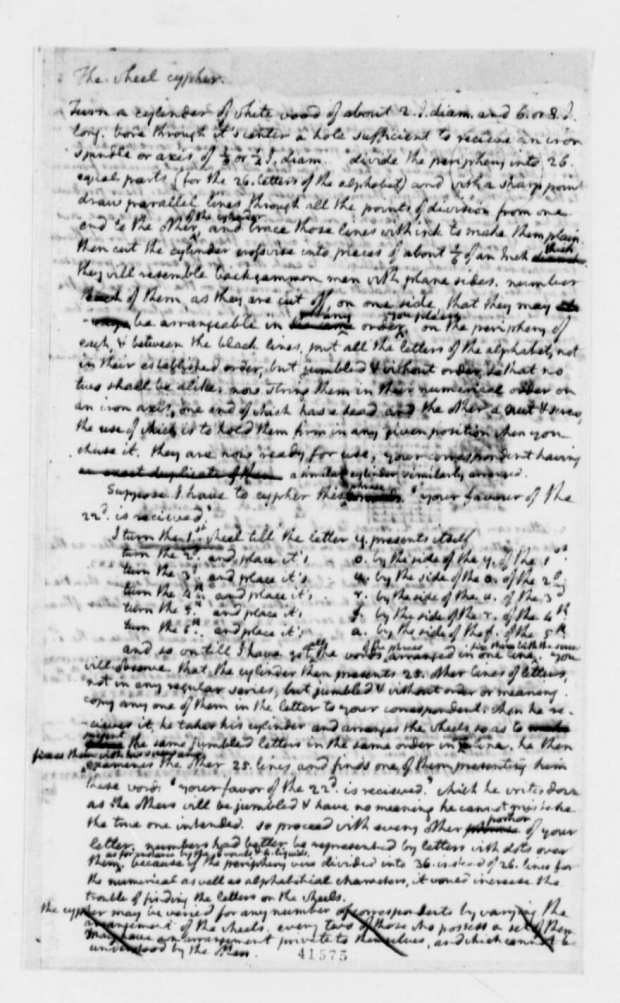 The wheel cypher.
Turn a cylinder of white wood of about 2. I. diam. and 6. or 8. I.
long. bore through it's center a hole sufficient to recieve an iron
spindle or axis of ⅛ or ¼ I. diam. divide the periphery into 26.
equal parts (for the 26. letters of the alphabet) and with a sharp point
draw parallel lines through all the points of division from one
end to the other of the cylinder, and trace those lines with ink to make them plain.
then cut the cylinder crosswise into pieces of about ⅙ of an inch thick
they will resemble back-gammon men with plane sides. number
each of them, as they are cut off, on one side, that they may
be arrangeable in any order you please. on the periphery of
each, & between the black lines, put all the letters of the alphabet, not
in their established order, but jumbled & without order, so that no
two shall be alike. now string them in their numerical order on
an iron axis, one end of which has a head, and the other a nut & screw;
the use of which is to hold them firm in any given position when you
chuse it. they are now ready for use, your correspondent having
an exact duplicate of them a similar cylinder, similarly arranged.
Suppose I have to cypher this phrase. 'your favour of the
22d. is recieved.'
I turn the 1st. wheel till the letter y. presents itself
turn the 2d. and place it's o. by the side of the y. of the 1st.
turn the 3d. and place it's u. by the side of the o. of the 2d.
turn the 4th. and place it's r. by the side of the u. of the 3d
turn the 5th. and place it's f. by the side of the r. of the 4th
turn the 6th. and place it's a. by the side of the f. of the 5th
and so on till I have got all the words of the phrase arranged in one line. fix them with the screw. you
will observe that the cylinder then presents 25. other lines of letters,
not in any regular series, but jumbled & without order or meaning.
copy any one of them in the letter to your correspondent. when he re-
cieves it, he takes his cylinder and arranges the wheels so as to
present the same jumbled letters in the same order in one line. he then
fixes them with his screw, and examines the other 25. lines and finds one of them presenting him
these words 'your favor of the 22d. is recieved.' which he writes down
as the others will be jumbled & have no meaning, he cannot mistake
the true one intended. so proceed with every other portion of your
letter. numbers had better be represented by letters with dots over
them; as for instance by the 6. vowels & 4. liquids. because if the periphery were divided into 36. instead of 26. lines for
the numerical as well as alphabetical characters, it would increase the
trouble of finding the letters on the wheels.
the cypher may be varied for any number of correspondents by varying the
arrangement of the wheels. every two of those who possess a set of them
may have an arrangement private to themselves, and which cannot be
understood by the others.
41575